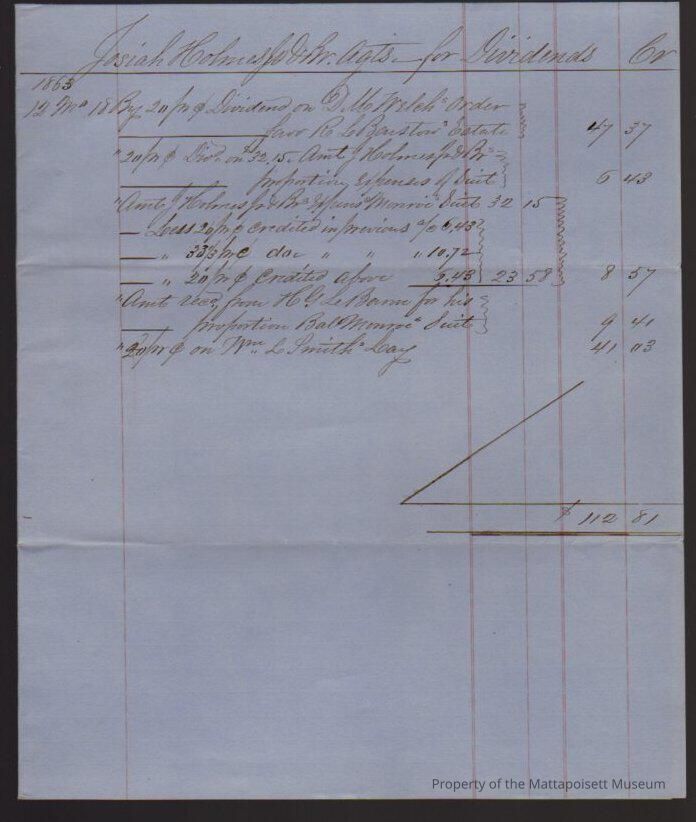 Josiah Holmes Jr & Br. Agts. for Dividends Cr
1863
12 Mo 18 By 20 pr ct Dividend on D. M. Welch's order
favor R. L. Barstow's Estate 47 37
" 20 pr ct Div. on 32.15. Amt J Holmes Jr & Br's
proportion expenses of Suit 6 43
" Amt J Holmes Jr & Br's Monroe Suit 32 15
Less 20 pr ct credited in previous a/c 6.43
" 33⅓ pr ct do " " " 10.72
" 20 pr ct credited above 6.43 23 58 8 57
" Amt recd. from for his
proportion Bal Monroe Suit 9 41
" 20 pr ct on Wm. L. Smith's Lay 41 03
$ 112 81
Property of the Mattapoisett Museum